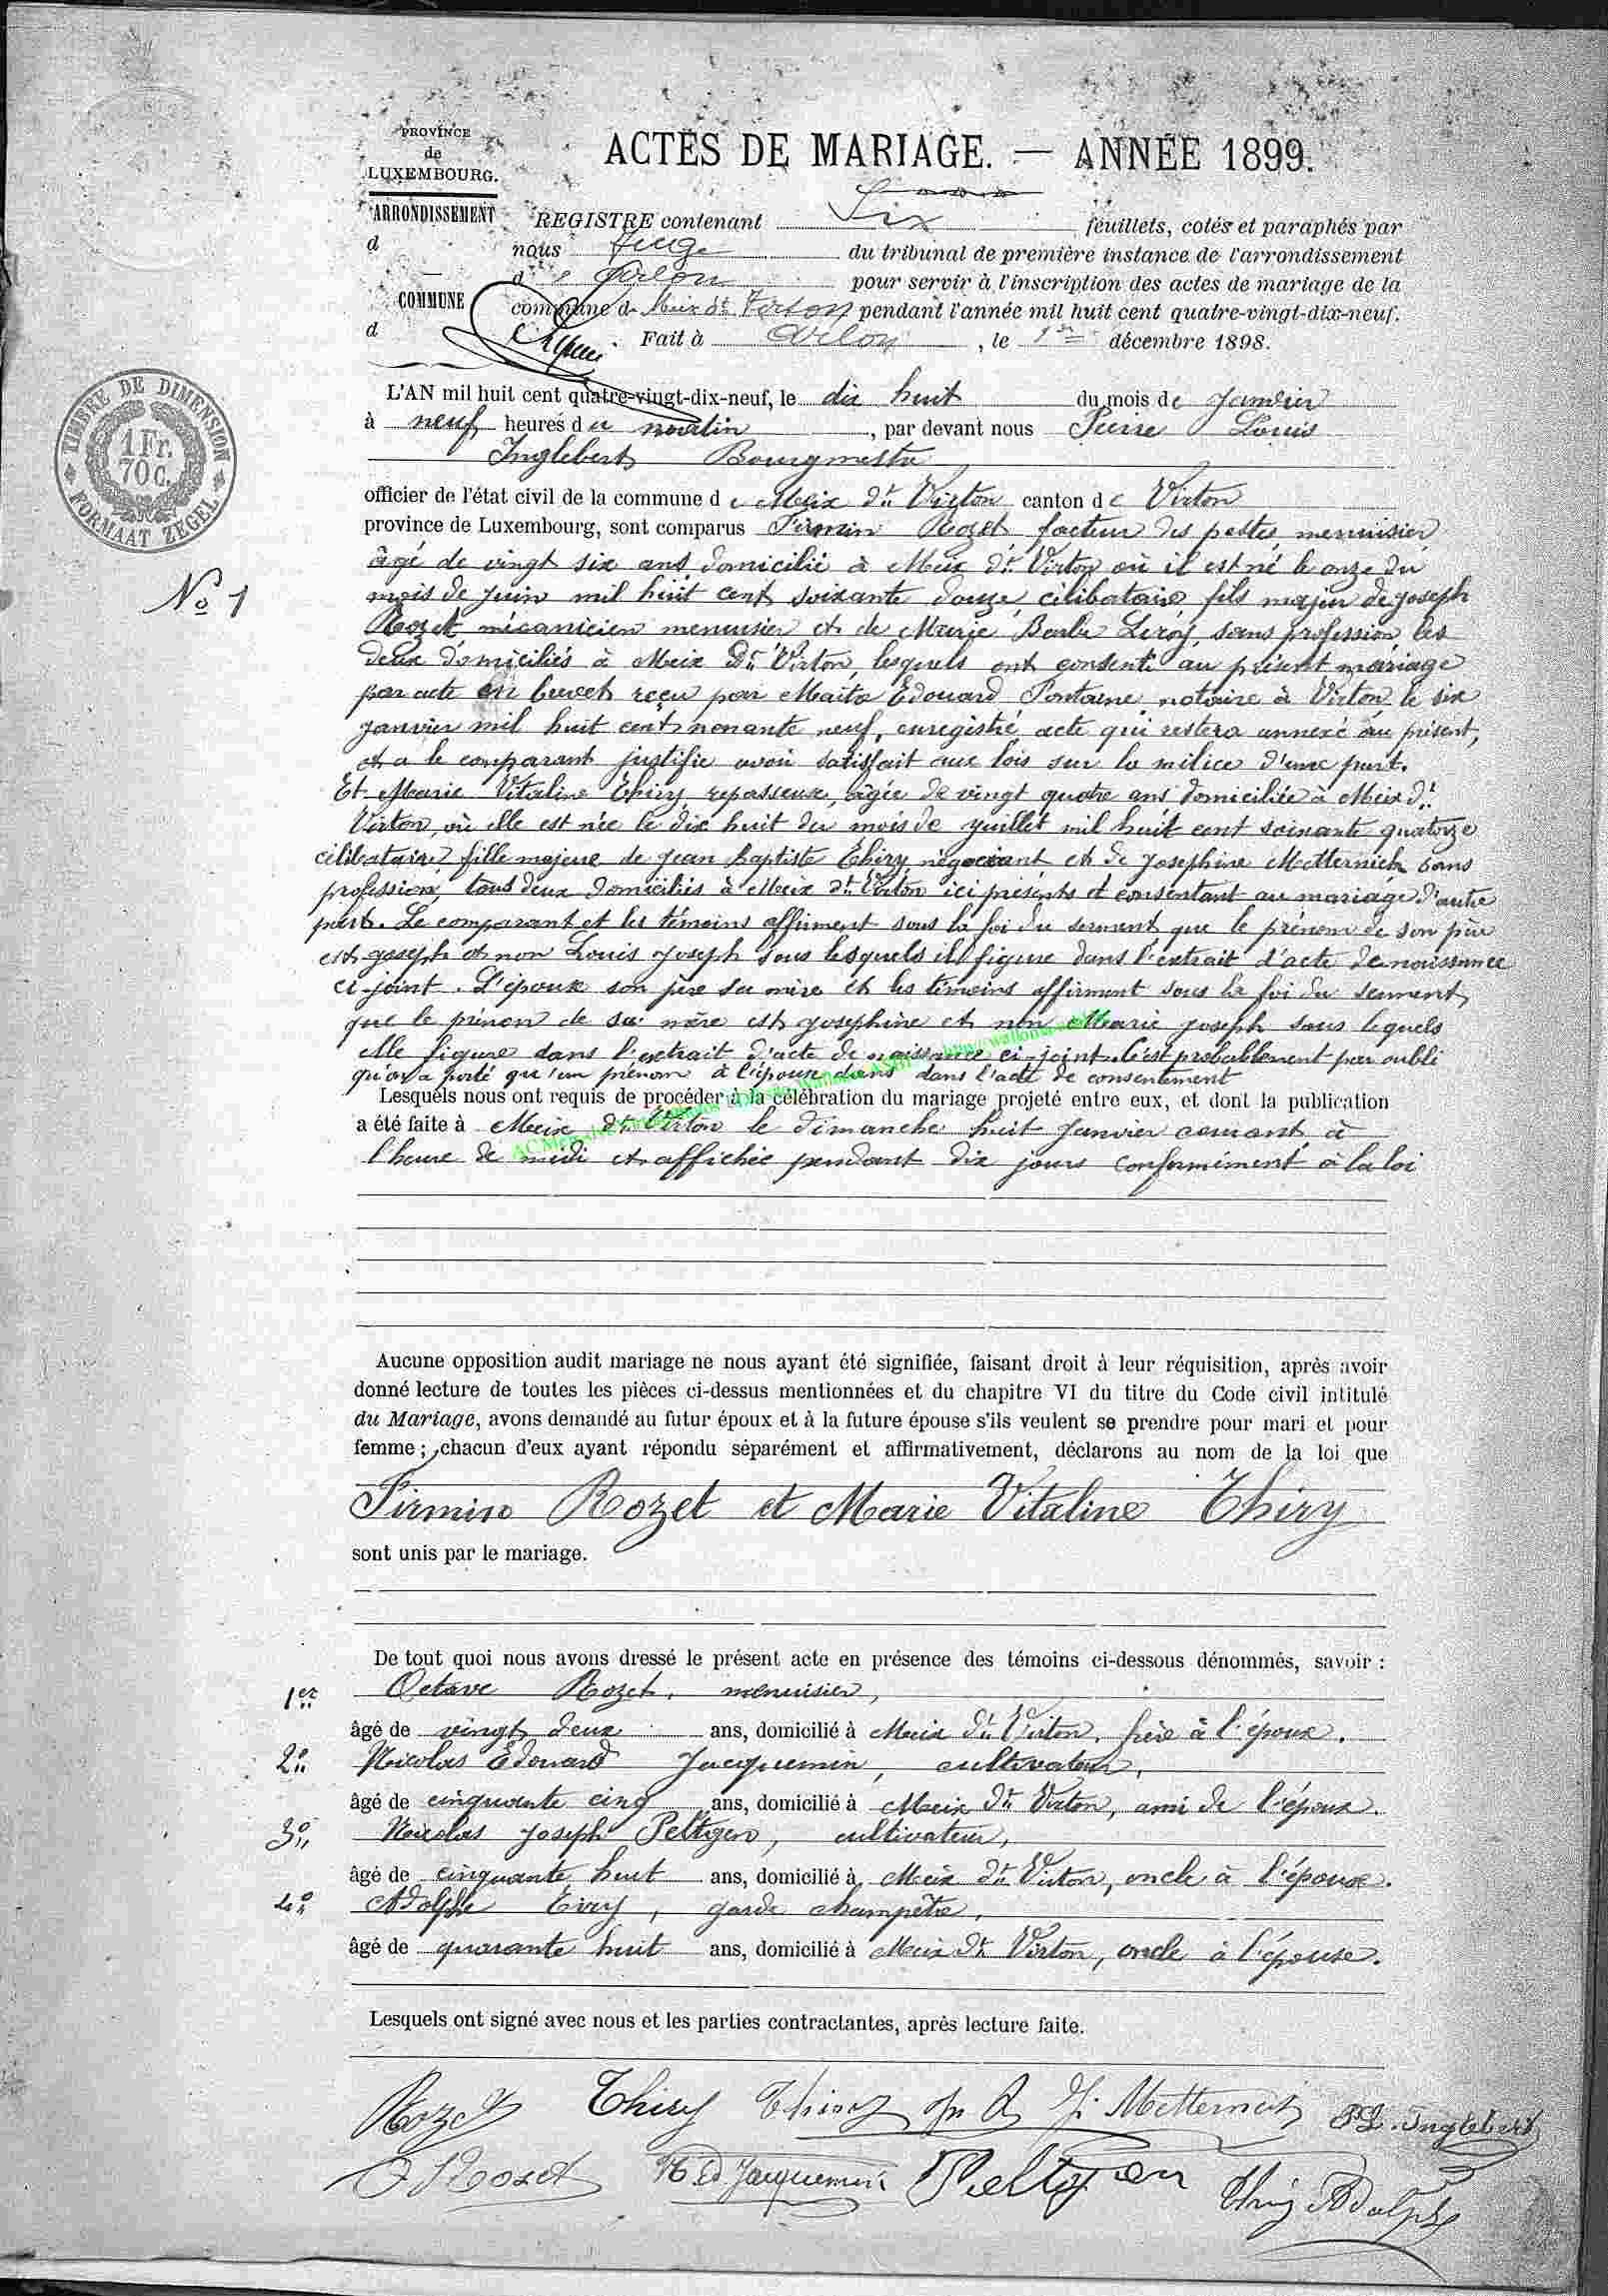 PROVINCE
de
LUXEMBOURG.
ACTES DE MARIAGE. — ANNÉE 1899.
ARRONDISSEMENT
d
REGISTRE contenant Six feuillets, cotés et paraphés par
nous Juge du tribunal de première instance de l'arrondissement
d'Arlon pour servir à l'inscription des actes de mariage de la
COMMUNE
d
commune de Meix dt Virton pendant l'année mil huit cent quatre-vingt-dix-neuf.
Fait à Arlon, le 1er décembre 1898.
TIMBRE DE DIMENSION
1 Fr.
70 C.
FORMAAT ZEGEL
No 1
L'AN mil huit cent quatre-vingt-dix-neuf, le dix huit du mois de Janvier
à neuf heures du matin, par devant nous Pierre Louis
Inglebert Bourgmestre
officier de l'état civil de la commune de Meix dt Virton canton de Virton
province de Luxembourg, sont comparus Firmin Rozet facteur des postes, menuisier
âgé de vingt six ans domicilié à Meix dt Virton où il est né le onze du
mois de Juin mil huit cent soixante douze, célibataire, fils majeur de Joseph
Rozet mécanicien menuisier et de Marie Barbe Leroy, sans profession les
deux domiciliés à Meix dt Virton, lesquels ont consenti au présent mariage
par acte en brevet reçu par Maitre Edouard Fontaine notaire à Virton, le six
janvier mil huit cent nonante neuf, enregistré, acte qui restera annexé au présent,
et a le comparant justifié avoir satisfait aux lois sur la milice d'une part.
Et Marie Vitaline Thiry, repasseuse, âgée de vingt quatre ans domiciliée à Meix dt
Virton, où elle est née le dix huit du mois de Juillet mil huit cent soixante quatorze
célibataire, fille majeure de Jean Baptiste Thiry, négociant, et de Josephine Metternich sans
profession, tous deux domiciliés à Meix dt Virton ici présents et consentant au mariage d'autre
part. Le comparant et les témoins affirment sous la foi du serment que le prénom de son père
est Joseph et non Louis Joseph sous lesquels il figure dans l'extrait d'acte de naissance
ci-joint. L'épouse son père sa mère et les témoins affirment sous la foi du serment
que le prénom de sa mère est Josephine et non Marie Joseph sous lequels
elle figure dans l'extrait d'acte de naissance ci-joint. C'est probablement par oubli
qu'on a porté qu'un prénom à l'épouse dans dans l'acte de consentement
Lesquels nous ont requis de procéder à la célébration du mariage projeté entre eux, et dont la publication
a été faite à Meix dt Virton le dimanche huit Janvier courant à
l'heure de midi et affichée pendant dix jours conformément à la loi
Aucune opposition audit mariage ne nous ayant été signifiée, faisant droit à leur réquisition, après avoir
donné lecture de toutes les pièces ci-dessus mentionnées et du chapitre VI du titre du Code civil intitulé
du Mariage, avons demandé au futur époux et à la future épouse s'ils veulent se prendre pour mari et pour
femme ; chacun d'eux ayant répondu séparément et affirmativement, déclarons au nom de la loi que
Firmin Rozet et Marie Vitaline Thiry
sont unis par le mariage.
De tout quoi nous avons dressé le présent acte en présence des témoins ci-dessous dénommés, savoir :
1er Octave Rozet, menuisier,
âgé de vingt deux ans, domicilié à Meix dt Virton, frère à l'époux.
2o Nicolas Edouard Jacquemin, cultivateur,
âgé de cinquante cinq ans, domicilié à Meix dt Virton, ami de l'époux.
3o Nicolas Joseph Peltgen, cultivateur,
âgé de cinquante huit ans, domicilié à Meix dt Virton, oncle à l'épouse.
4o Adolphe Thiry, garde champêtre,
âgé de quarante huit ans, domicilié à Meix dt Virton, oncle à l'épouse.
Lesquels ont signé avec nous et les parties contractantes, après lecture faite.
Rozet Thiry Thiry J. Metternich P.L. Inglebert
O Rozet N Ed Jacquemin Peltgen Thiry Adolphe